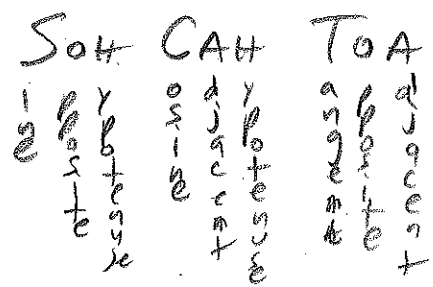 SOH CAH TOA
ine
pposite
ypotenuse
osine
djacent
ypotenuse
angent
pposite
djacent